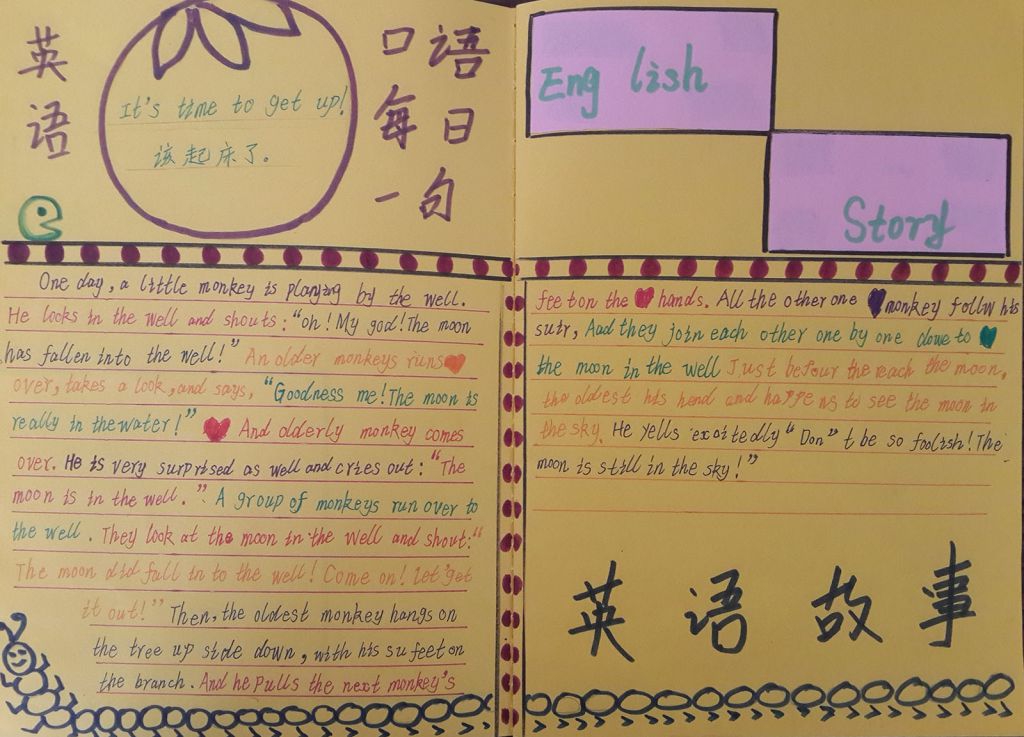 英语
It's time to get up!
该起床了。
口语
每日
一句
One day, a little monkey is playing by the well.
He looks in the well and shouts: "oh! My god! The moon
has fallen into the well!" An older monkeys runs
over, takes a look, and says, "Goodness me! The moon is
really in the water!" And olderly monkey comes
over. He is very surprised as well and cries out: "The
moon is in the well." A group of monkeys run over to
the well. They look at the moon in the well and shout: "
The moon did fall in to the well! Come on! Let'get
it out!" Then, the oldest monkey hangs on
the tree up side down, with his su feet on
the branch. And he pulls the next monkey's
Eng lish
Story
feet on the hands. All the other one monkey follw his
suir, And they join each other one by one dowe to
the moon in the well Just befour the reach the moon,
the oldest his hend and happens to see the moon in
the sky. He yells excitedly "Don" t be so foolish! The
moon is still in the sky!"
英语故事